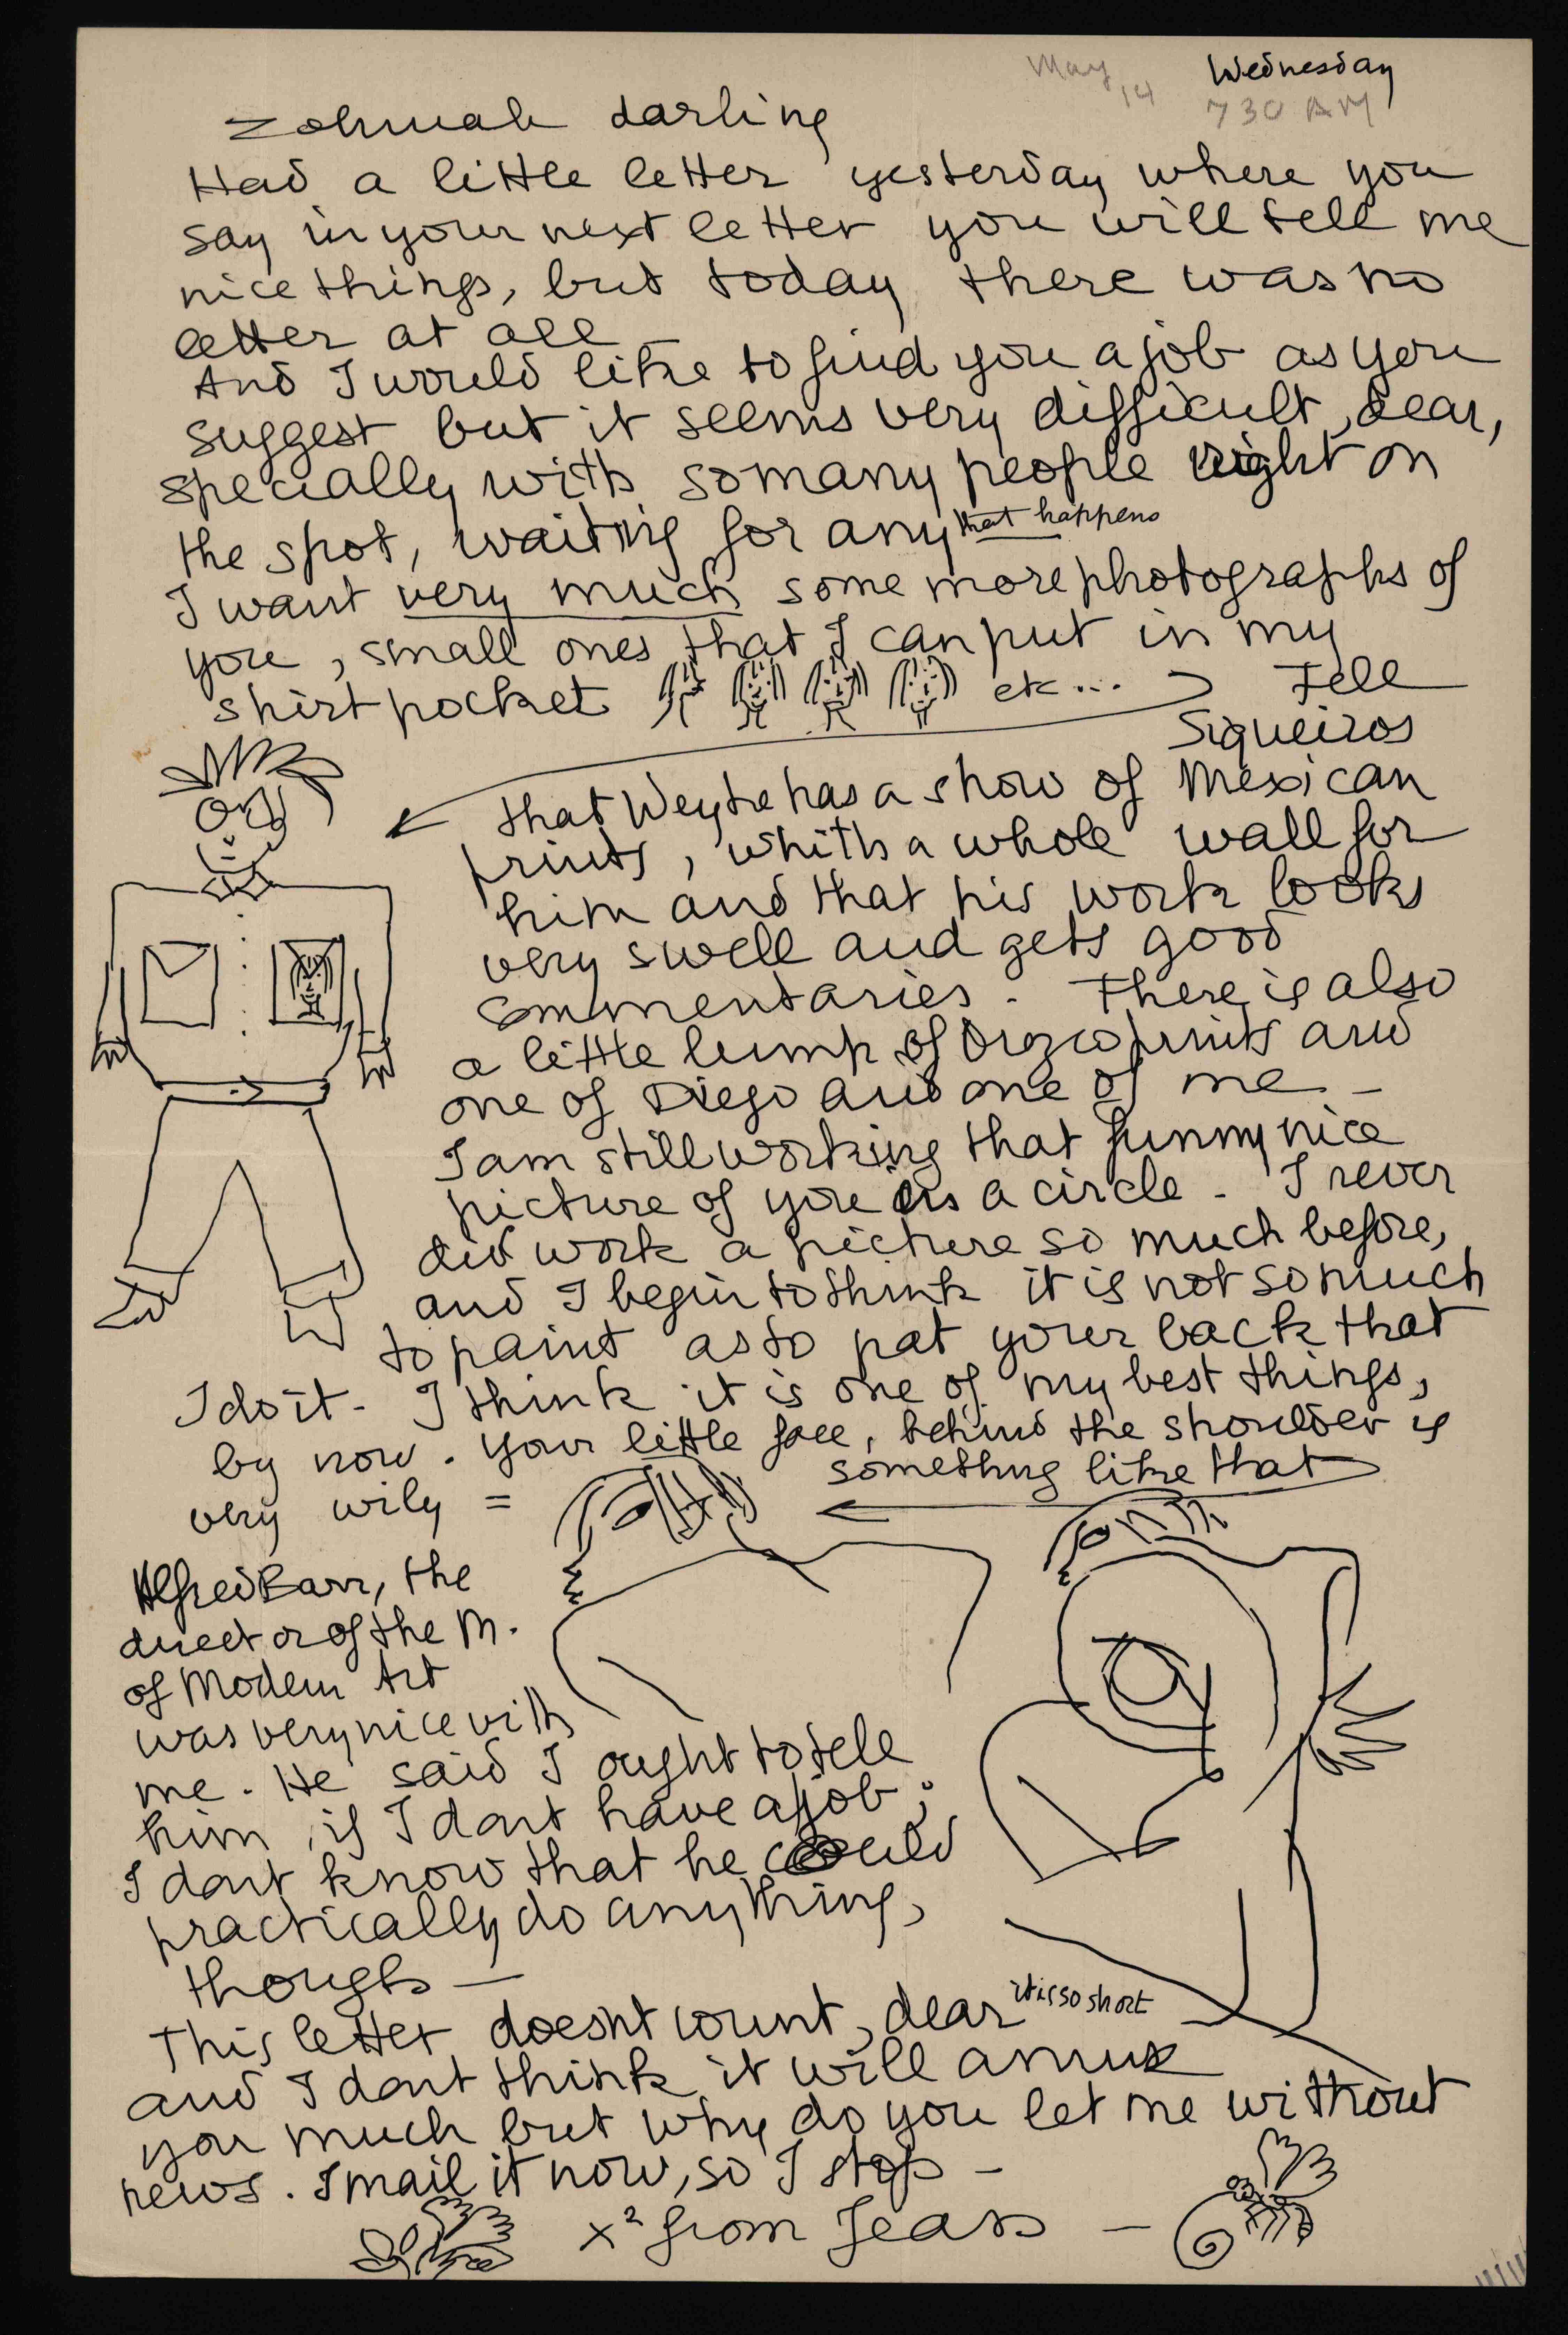 May 14
Wednesday
730 AM
Zohmah darling
Had a little letter yesterday where you
say in your next letter you will tell me
nice things, but today there was no
letter at all —
And I would like to find you a job as you
suggest but it seems very difficult, dear,
specially with so many people right on
the spot, waiting for any that happens
I want very much some more photographs of
you, small ones that I can put in my
shirt pocket etc... Tell
Siqueiros
that Weyhe has a show of Mexican
prints, whith a whole wall for
him and that his work looks
very swell and gets good
commentaries. There is also
a little lump of Orozco prints and
one of Diego and one of me —
I am still working that funny nice
picture of you as a circle - I never
did work a picture so much before,
and I begin to think it is not so much
to paint as to pat your back that
I do it - I think it is one of my best things,
by now. Your little face, behind the shoulder is
very wily = something like that
Alfred Barr, the
director of the M.
of Modern Art
was very nice with
me. He said I ought to tele
him, if I dont have a job;
I dont know that he could
practically do anything,
though —
This letter doesnt count, dear it is so short
and I dont think it will amuse
you much but why do you let me without
news. I mail it now, so I stop -
x² from Jean —